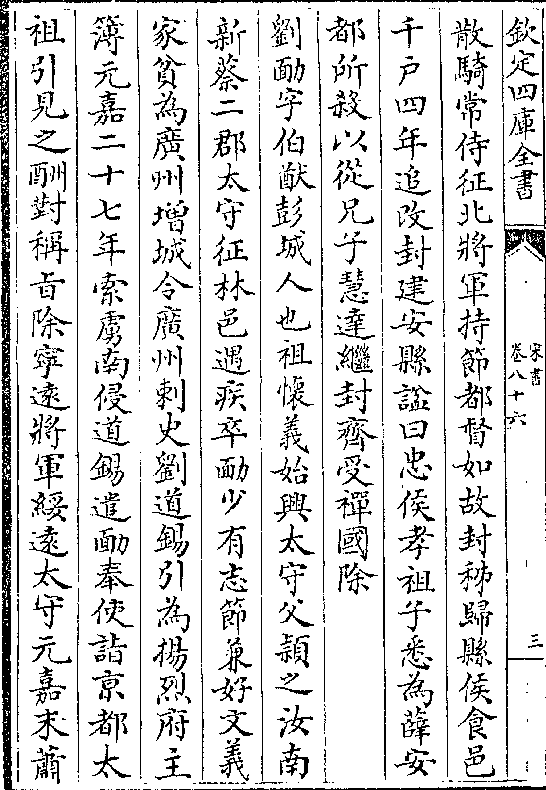 欽定四庫全書
宋書
卷八十六
三
散騎常侍征北將軍持節都督如故封秭歸縣侯食邑
千戶四年追改封建安縣諡曰忠侯孝祖子悉為薛安
都所殺以從兄子慧達繼封齊受禪國除
劉勔字伯猷彭城人也祖懷義始興太守父頴之汝南
新蔡二郡太守征林邑遇疾卒勔少有志節兼好文義
家貧為廣州增城令廣州刺史劉道錫引為揚烈府主
簿元嘉二十七年索虜南侵道錫遣勔奉使詣京都太
祖引見之酬對稱旨除寧逺將軍綏逺太守元嘉末蕭